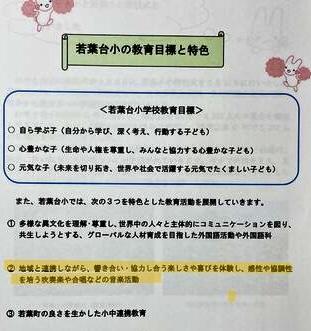 若葉台小の教育目標と特色
＜若葉台小学校教育目標＞
○ 自ら学ぶ子（自分から学び、深く考え、行動する子ども）
○ 心豊かな子（生命や人権を尊重し、みんなと協力する心豊かな子ども）
○ 元気な子（未来を切り拓き、世界や社会で活躍する元気でたくましい子ども）
また、若葉台小では、次の３つを特色とした教育活動を展開していきます。
① 多様な異文化を理解・尊重し、世界中の人々と主体的にコミュニケーションを図り、
共生しようとする、グローバルな人材育成を目指した外国語活動や外国語科
② 地域と連携しながら、響き合い・協力し合う楽しさや喜びを体験し、感性や協調性
を培う吹奏楽や合唱などの音楽活動
③ 若葉町の良さを生かした小中連携教育